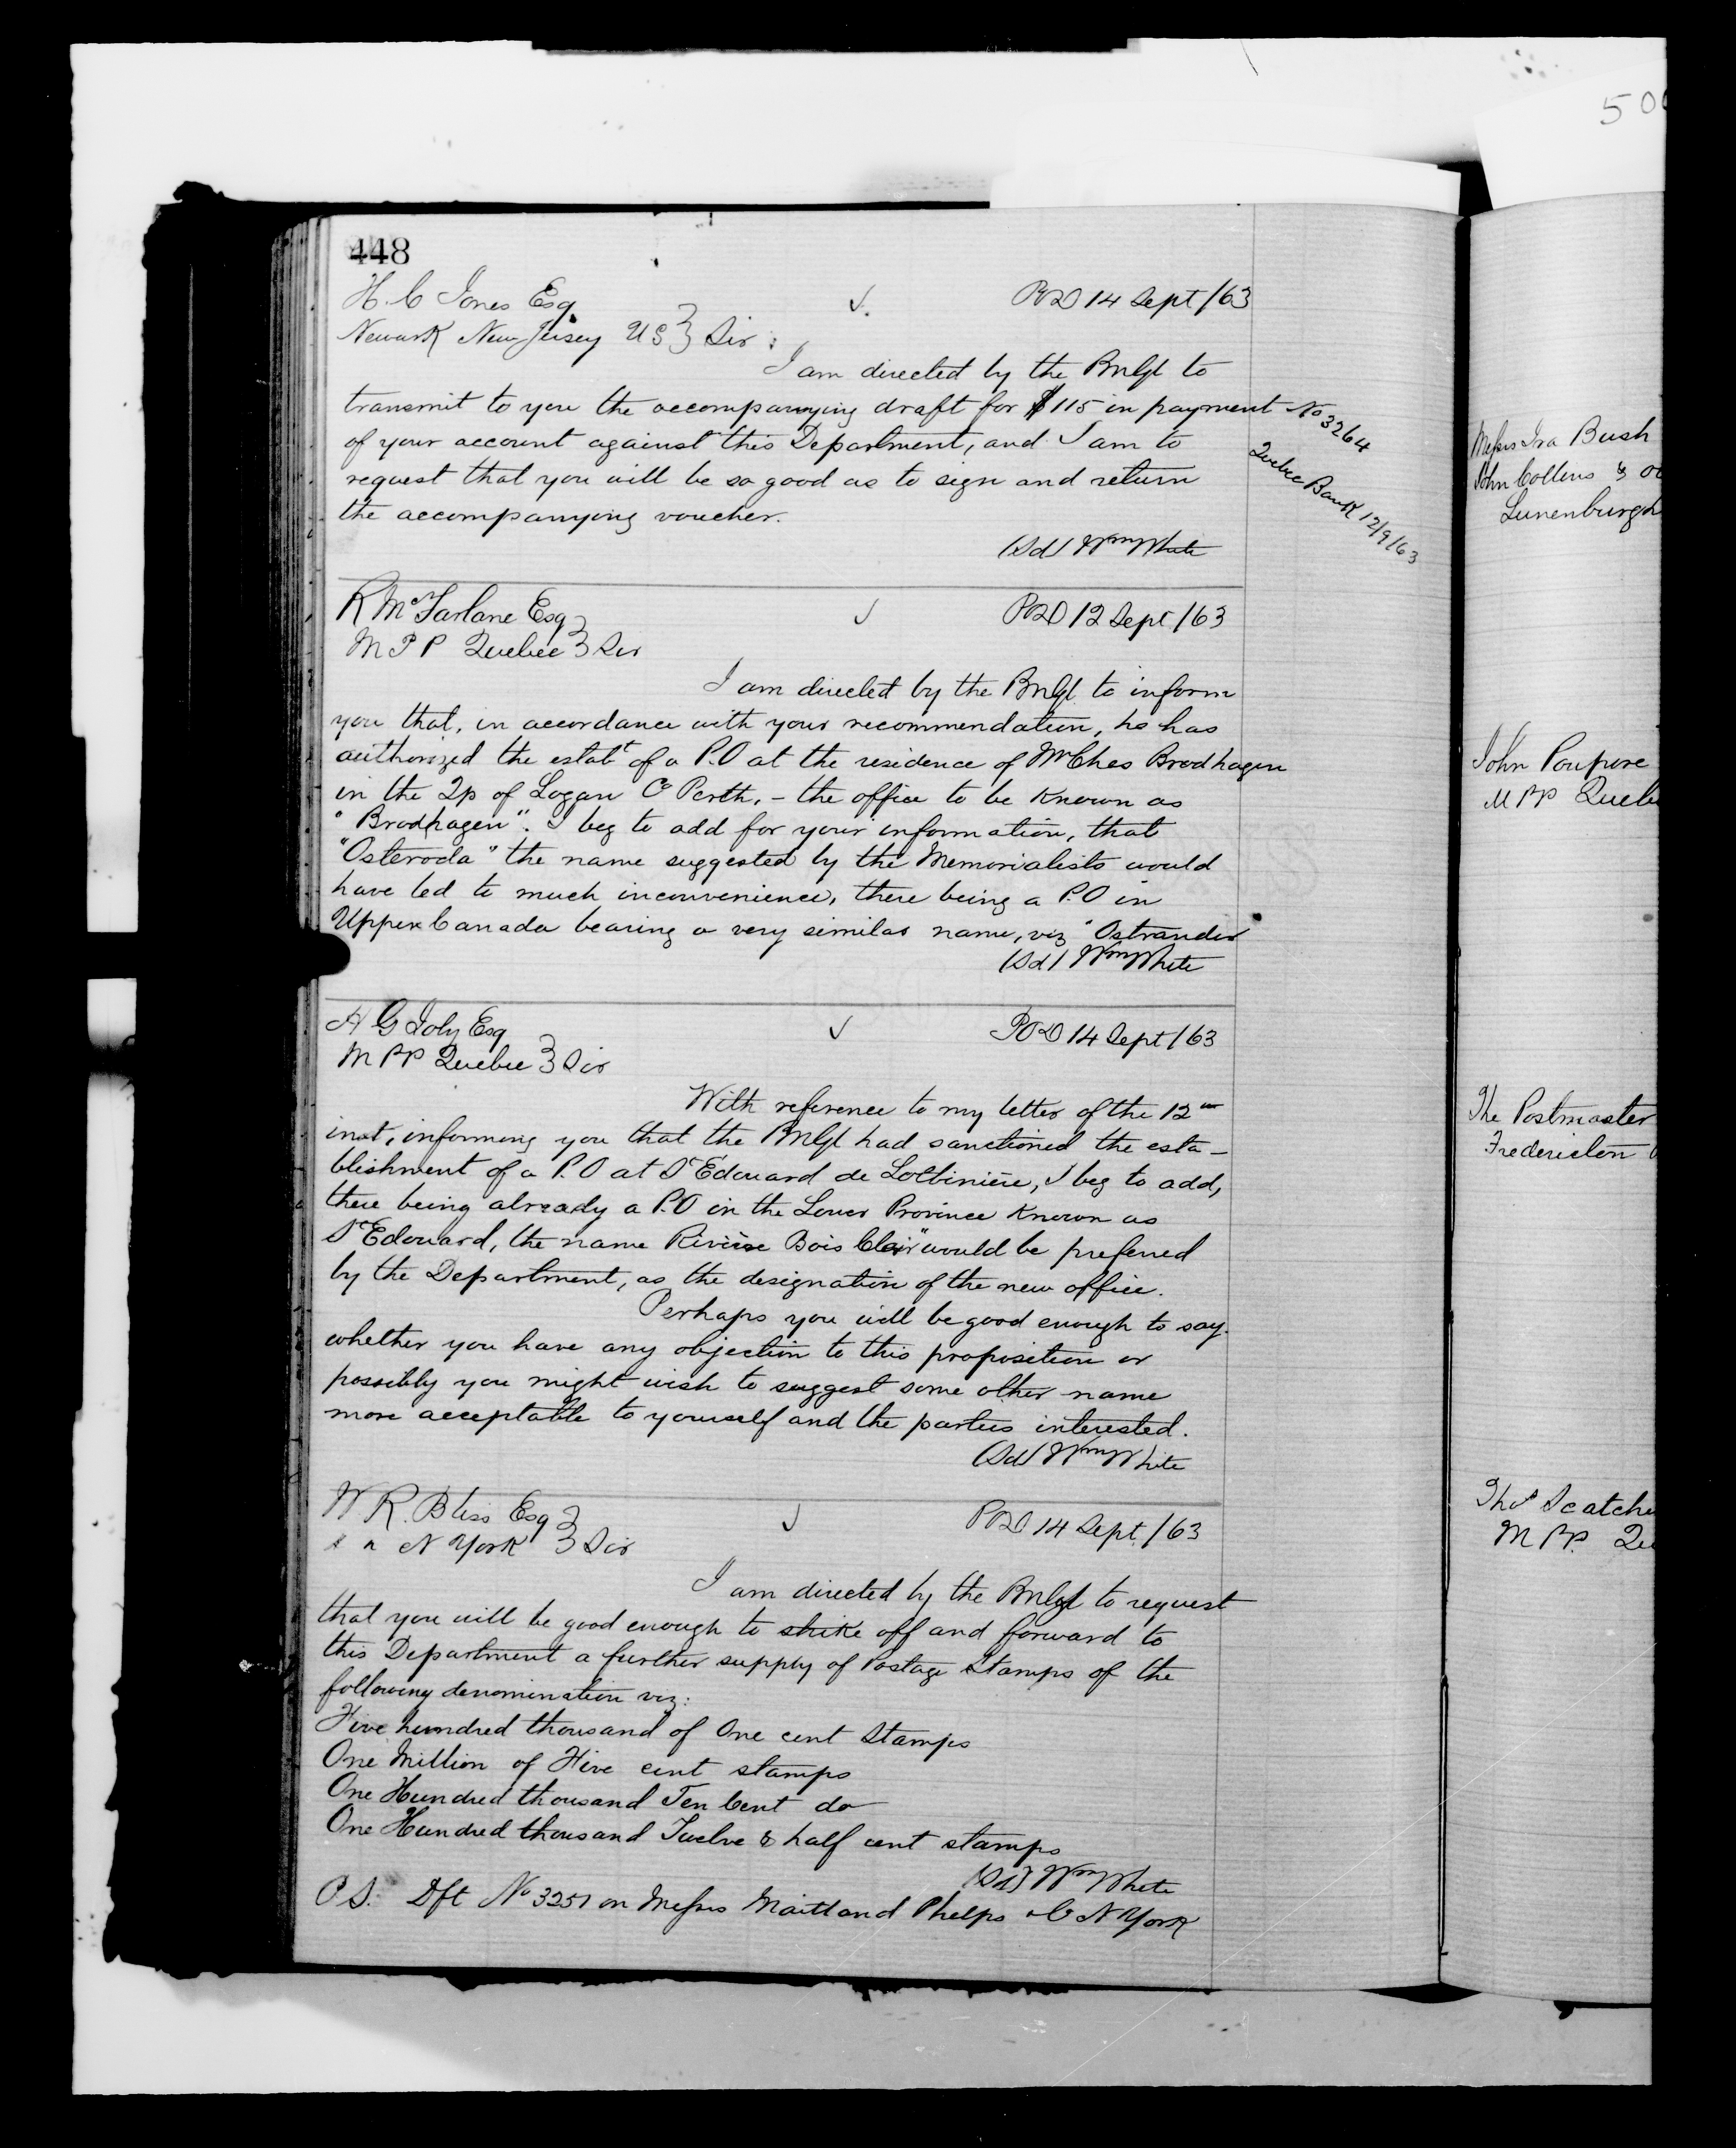 500
448
H. C Jones Esq
Newark New Jersey US } Sir :
✓.
POD 14 Sept /63
I am directed by the PMGl to
transmit to you the accompanying draft for $115 in payment
of your account against this Department, and I am to
request that you will be so good as to sign and return
the accompanying voucher.
(Sd) Wm White
No 3264
Quebec Bank 12/9/63
R McFarlane Esq
M P P Quebec } Sir
✓
POD 12 Sept /63
I am directed by the PMGl to inform
you that, in accordance with your recommendation, he has
authorized the estabt of a P.O at the residence of Mr Chas Brodhagen
in the Tp of Logan Co Perth, – the office to be known as
"Brodhagen". I beg to add for your information, that
"Osteroda" the name suggested by the Memorialists would
have led to much inconvenience, there being a P.O in
Upper Canada bearing a very similar name, viz "Ostrander"
(Sd) Wm White
H G Joly Esq
M PP Quebec } Sir
✓
POD 14 Sept /63
With reference to my letter of the 12th
inst, informing you that the PMGl had sanctioned the esta-
blishment of a P.O at St Edouard de Lotbinière, I beg to add,
there being already a P.O in the Lower Province known as
St Edouard, the name Rivière Bois Clair" would be preferred
by the Department, as the designation of the new office.
Perhaps you will be good enough to say
whether you have any objection to this proposition or
possibly you might wish to suggest some other name
more acceptable to yourself and the parties interested.
(Sd) Wm White
W R. Bliss Esq
N York } Sir
✓
POD 14 Sept /63
I am directed by the PMGl to request
that you will be good enough to strike off and forward to
this Department a further supply of Postage Stamps of the
following denomination viz:
Five hundred thousand of One cent Stamps
One Million of Five cent stamps
One Hundred thousand Ten Cent do
One Hundred thousand Twelve & half cent stamps
(Sd) Wm White
P.S. Dft No 3251 on Messrs Maitland Phelps & C N York
Messrs Ira Bush
John Collins &
Lunenburgh
John Poupore
M PP Quebe
The Postmaster
Fredericton
Thos Scatche
M PP. Qu